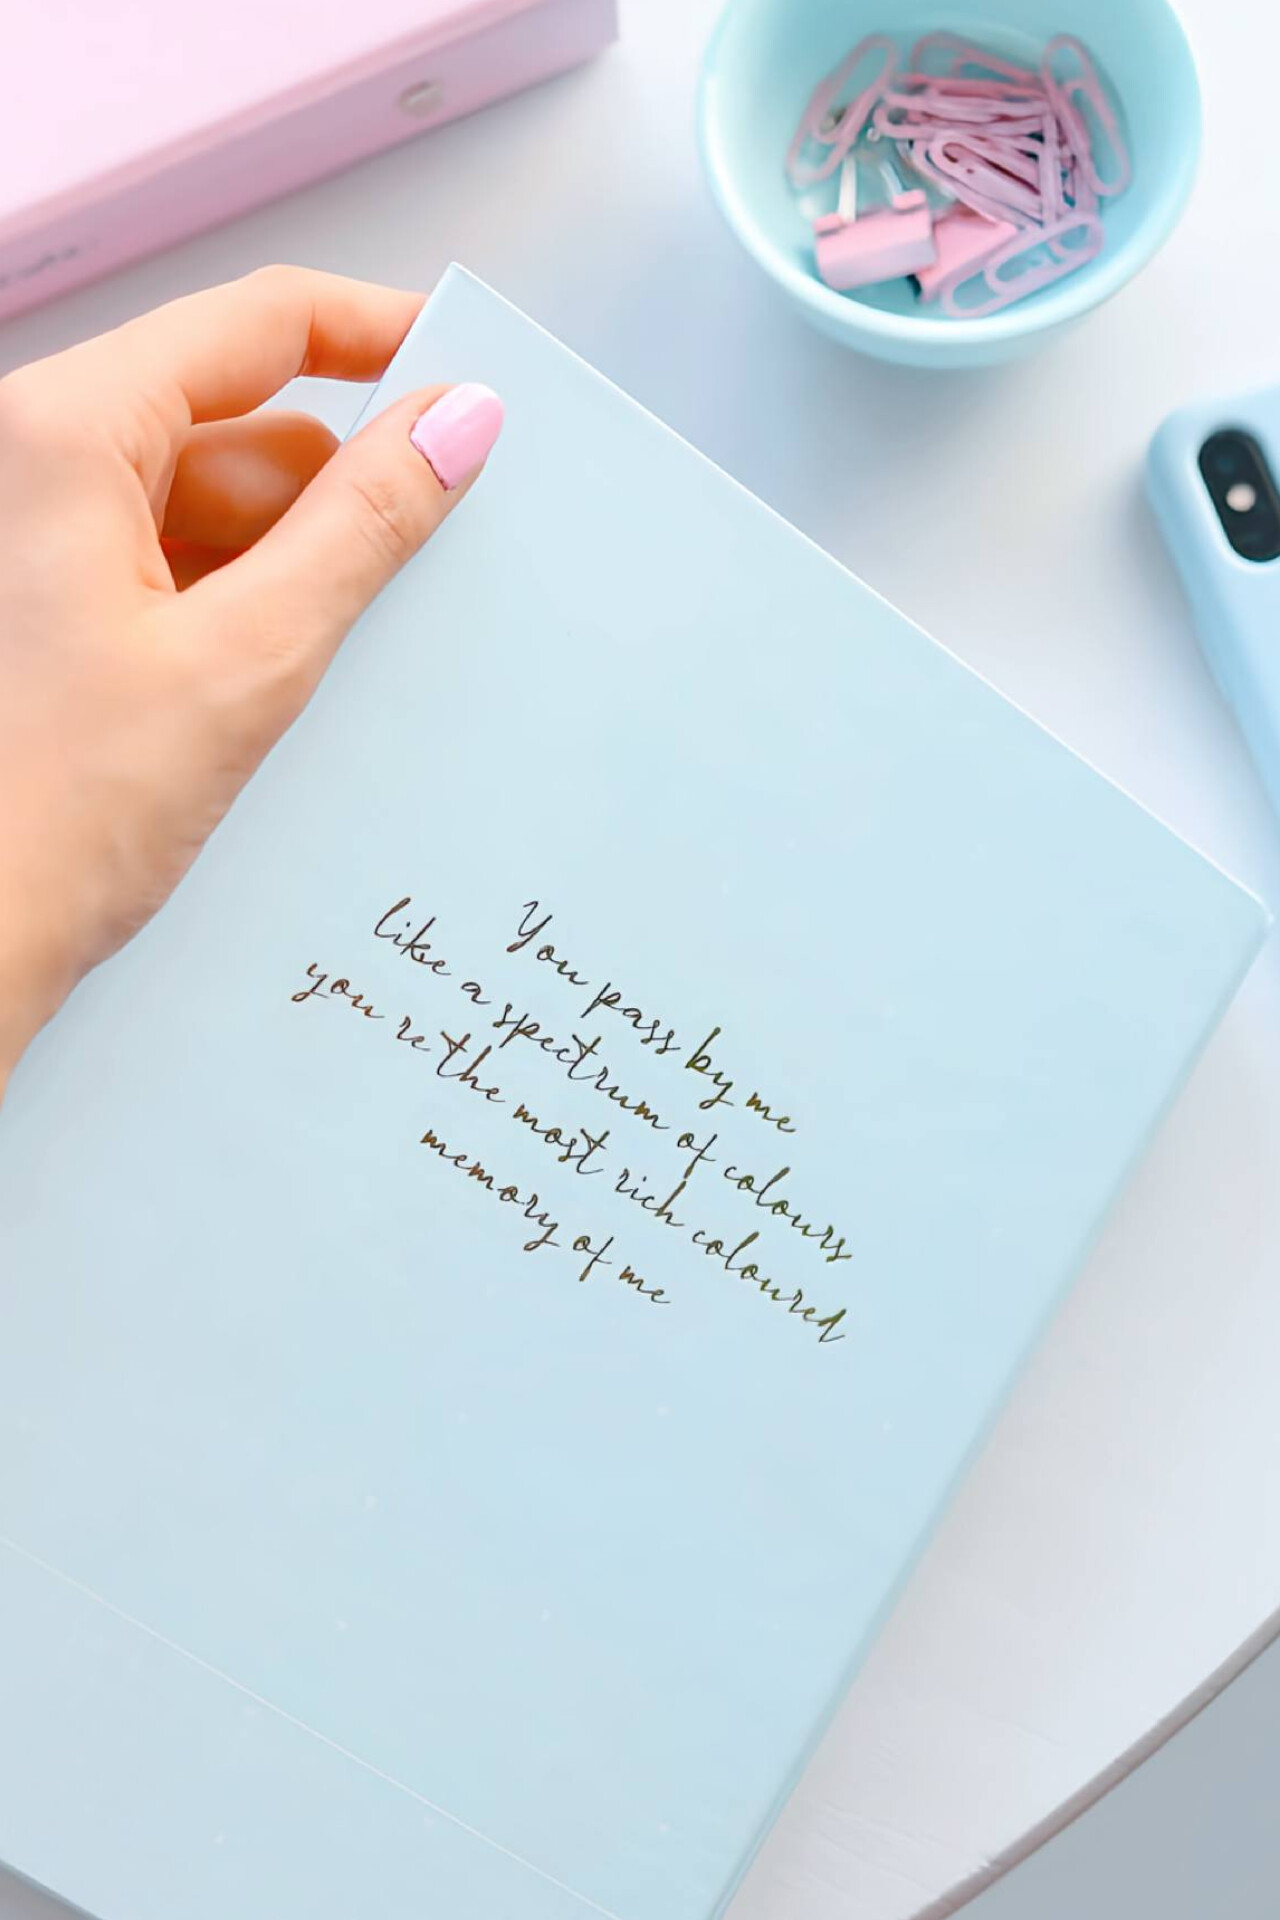 You pass by me
like a spectrum of colours
you re the most rich coloured
memory of me